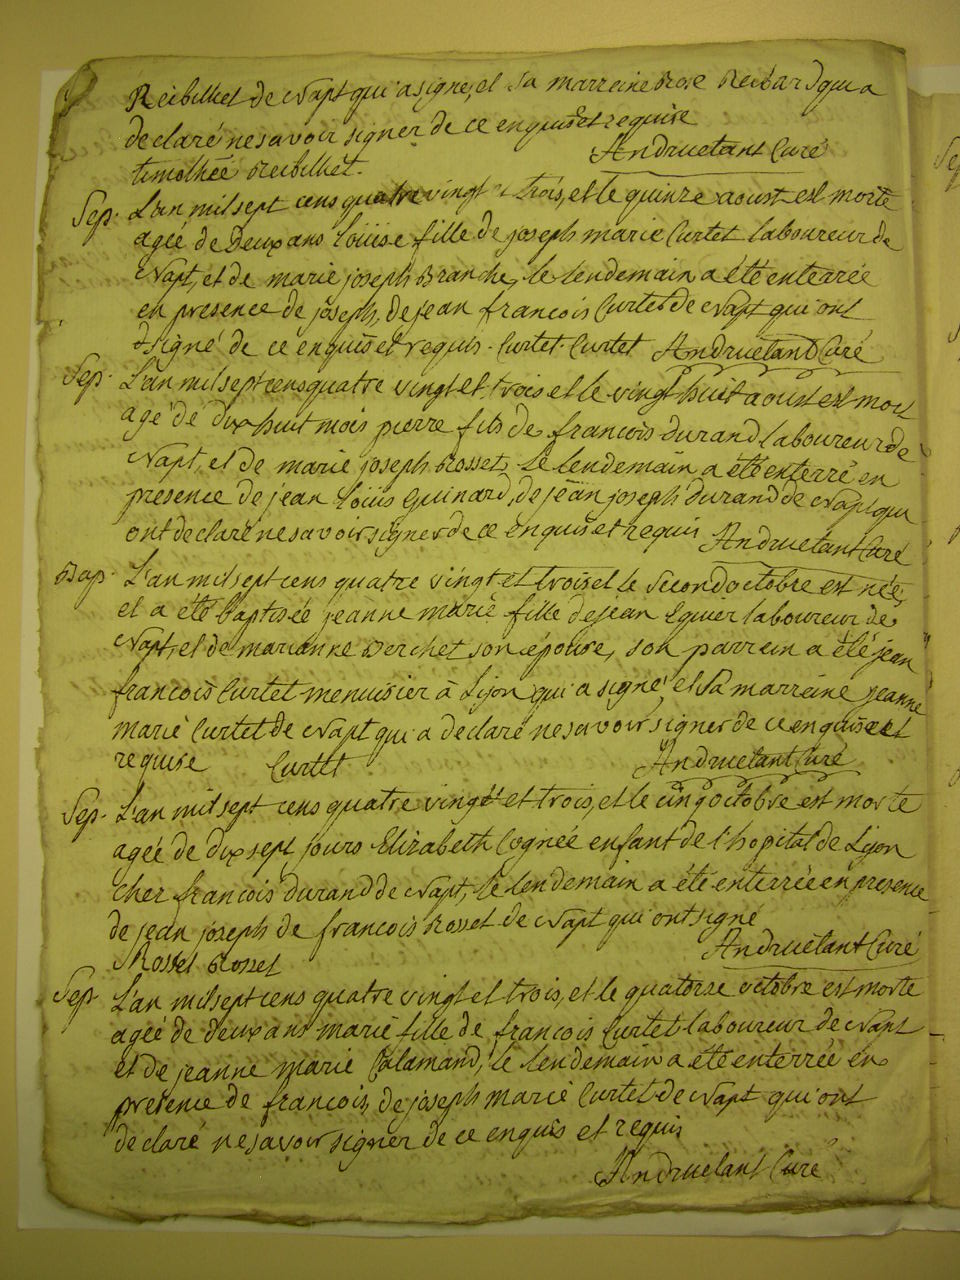 Reibilliet de Napt qui a signé, et sa marreine Rose Reibard qui a
declaré ne savoir signer de ce enquise et requise
Andruetant Curé
timothée Reibilliet.
Sep. L'an mil sept cens quatre vingt et trois, et le quinze aoust est morte
agée de deux ans Loüise fille de joseph marie Curtet laboureur de
Napt, et de marie joseph Branche, le lendemain a été enterrée
en presence de joseph, de jean francois Curtet de Napt qui ont
signé de ce enquis et requis. Curtet. Curtet Andruetant Curé
Sep. L'an mil sept cens quatre vingt et trois et le vingt huit aoust est mort
agé de dix huit mois pierre fils de francois durand laboureur de
Napt, et de marie joseph Rosset, le lendemain a été enterré en
presence de jean Loüis guinard, de jean joseph durand de Napt qui
ont declaré ne savoir signer de ce enquis et requis Andruetant Curé
Bap. L'an mil sept cens quatre vingt et trois et le second octobre est née,
et a été baptisée jeanne marie fille de jean Eguier laboureur de
Napt, et de marianne Berchet son épouse, son parrein a été jean
francois Curtet menuisier à Lyon qui a signé, et sa marreine jeanne
marie Curtet de Napt qui a declaré ne savoir signer de ce enquise et
requise Curtet Andruetant Curé
Sep. L'an mil sept cens quatre vingt et trois, et le cinq octobre est morte
agée de dix sept jours Elizabeth Cognée enfant de l'hopital de Lyon
cher francois durand de Napt, le lendemain a été enterrée en presence
de jean joseph de francois Rosset de Napt qui ont signé
Rosset Rosset Andruetant Curé
Sep. L'an mil sept cens quatre vingt et trois, et le quatorze octobre est morte
agée de deux ans marie fille de francois Curtet laboureur de Napt
et de jeanne marie Calamand, le lendemain a été enterrée en
presence de francois, de joseph marie Curtet de Napt qui ont
declaré ne savoir signer de ce enquis et requis
Andruetant Curé